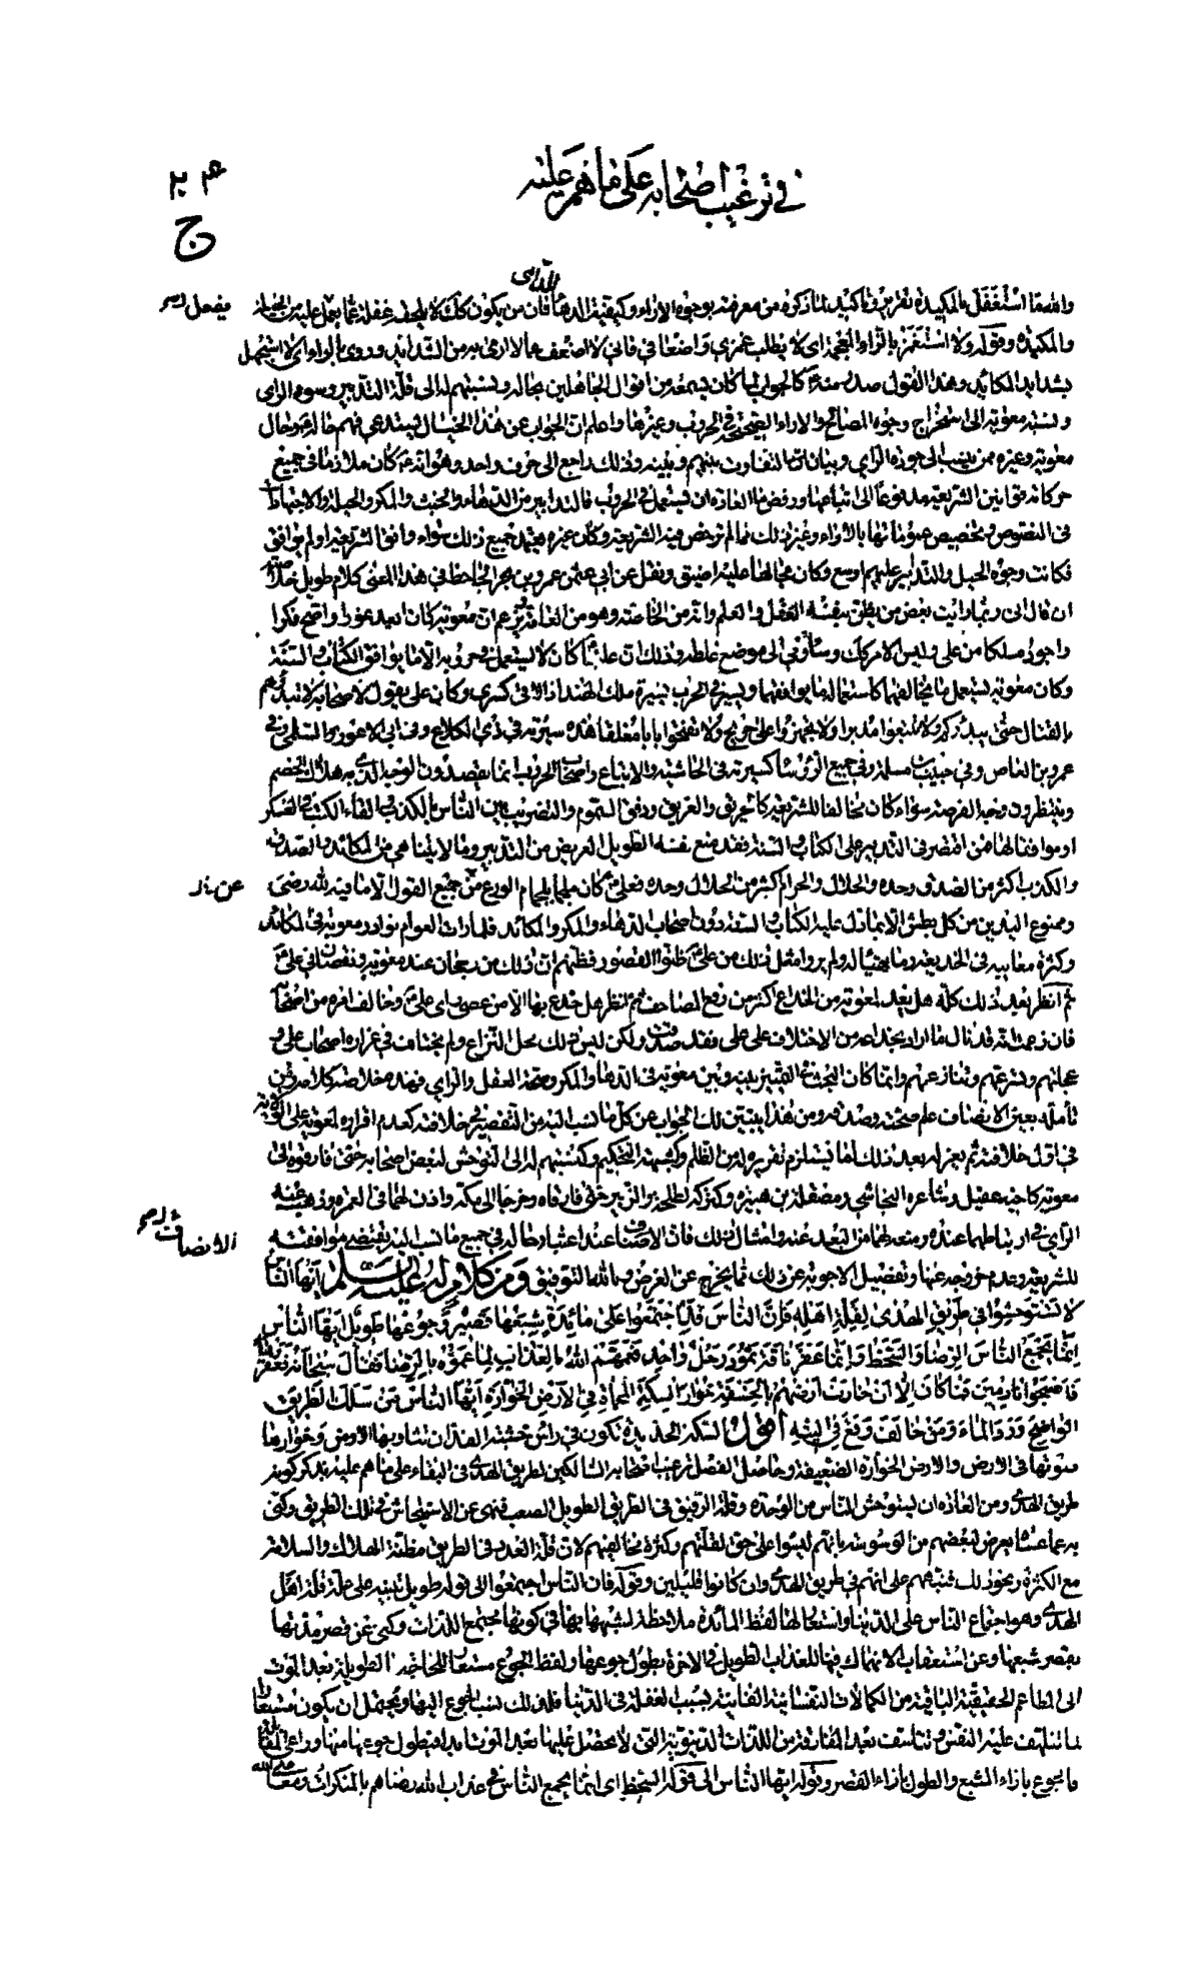 في ترغيب اصحابه على ما هم عليه
٢٠٤
ج
الذاتي
والله ما استغفل بالمكيدة تقرير وتاكيد لما ذكره من معرفته بوجوه الاراء وكيفية الدهاء فان من يكون كك لا يلحقه غفلة عما يعمل عليه من الحيلة
يفعل
والمكيدة وقوله ولا استغمز بالزاء المعجمة اى لا يطلب غمزى واضعافى فانى لا اضعف عما ارمى به من الشدايد وروى بالراء اى لا استجهل
بشدايد المكائد وهذا القول صدر منه ع كالجواب لما كان يسمعه من اقوال الجاهلين بحاله ونسبتهم له الى قلة التدبير وسوء الراى
ونسبة معوية الى استخراج وجوه المصالح والاراء الصحيحة فى الحروب وغيرها واعلم ان الجواب عن هذا الخيال يستدعى فهم حاله ع وحال
معوية وغيره ممن ينسب الى جودة الراي وبيان التفاوت بينهم وبينه وذلك راجع الى حرف واحد وهو انه ع كان ملازما فى جميع
حركاته قوانين الشريعة مدفوعا الى اتباعها ورفض ما العادة ان يستعمل فى الحروب فالتدابير من الدهاء والخبث والمكر والحيلة والاجتهادات
فى النصوص وتخصيص عموماتها بالاراء وغير ذلك مما لم ترخص فيه الشريعة وكان غيره يعتمد جميع ذلك سواء وافق الشريعة او لم يوافق
فكانت وجوه الحيل والتدابير عليهم اوسع وكان مجالها عليه اضيق ونقل عن ابى عثمن عمرو بن بحر الجاحظ فى هذا المعنى كلام طويل خلاصته
ان قال انى ربما رايت بعض من يظن بنفسه العقل والعلم وانه من الخاصة وهو من العامة يزعم ان معوية كان ابعد غورا واصح فكرا
واجود مسلكا من على وليس الامر كك وساومى الى موضع غلطه وذلك ان عليا ع كان لا يستعمل فى حروبه الا ما يوافق الكتاب والسنة
وكان معوية يستعمل ما يخالفهما كاستعماله ما يوافقهما ويسير فى الحرب بسيرة ملك الهند اذا لاقى كسرى وكان على يقول لاصحابه لا تبدؤهم
بالقتال حتى يبدؤكم ولا تتبعوا مدبرا ولا تجهزوا على جريح ولا تفتحوا بابا مغلقا هذه سيرته فى ذى الكلاع وفى ابى الاعور السلمى وفى
عمرو بن العاص وفى حبيب بن مسلمة وفى جميع الرؤساء كسيرته فى الحاشية والاتباع واصحاب الحروب انما يقصدون الوجه الذى به هلاك الخصم
وينتظرون وجه الفرصة سواء كان مخالفا للشريعة كالحريق والغريق ودفق السموم والتضريب بين الناس بالكذب والقاء الكتب فى العسكر
او موافقا لها فمن اقتصر فى التدبير على الكتاب والسنة فقد منع نفسه الطويل العريض من التدبير وما لا يتناهى من المكائد والصدق
والكذب اكثر من الصدق وحده والحلال والحرام اكثر من الحلال وحده فعلى ع كان ملجما بلجام الورع من جميع القول الا ما فيه لله رضى
عن
وممنوع اليدين من كل بطش الا بما دل عليه الكتاب والسنة دون اصحاب الدهاء والمكر والمكائد فلما رات العوام نوادر معوية فى المكائد
وكثرة معايبه فى الخديعة وما تهيأ له ولم يروا مثل ذلك من على ع ظنوا القصور فظنهم ان ذلك من رجحان عند معوية ونقصان فى على ع
ثم انظر بعد ذلك كله هل يعد لمعوية من الخداع اكثر من رفع المصاحف ثم انظر هل خدع بها الا من عصى راى على ع وخالف امره من اصحابه
فان زعمت انه قد نال ما اراد بخداعه من الاختلاف على على فقد صدقت ولكن ليس ذلك محل النزاع ولم يختلف فى غرارة اصحاب على و
عجلتهم وتسرعهم وتنازعهم وانما كان البحث فى التمييز بينه وبين معوية فى الدهاء والمكر وصحة العقل والراى فهذه خلاصة كلامه ومن
تامله بعين الانصاف علم صحته وصدقه ومن هذا يتبين لك الجواب عن كل ما نسب اليه من التقصير فى خلافته كعدم اقراره لمعوية على الولاية
فى اول خلافته ثم يعزله بعد ذلك لما يستلزم تقريره له من الظلم وكشبهة التحكيم وكنسبتهم له الى التوحش لبعض اصحابه حتى فارقوه الى
معوية كاخيه عقيل وشاعره النجاشى ومصقلة بن هبيرة وكتركه لطلحة والزبير حتى فارقاه وخرجا الى مكة واذن لهما فى العمرة وذهب عنه
الراى فى ارتباطهما عنده ومنعهما من البعد عنه وامثال ذلك فان الانصاف عند اعتبار حاله فى جميع ما نسب اليه يقتضى موافقته
الانصاف
للشريعة وعدم خروجه عنها وتفصيل الاجوبة عن ذلك مما يخرج عن الغرض وبالله التوفيق ومن كلام له عليه السلم ايها الناس
لا تستوحشوا فى طريق الهدى لقلة اهله فان الناس قد اجتمعوا على مائدة شبعها قصير وجوعها طويل ايها الناس
انما يجمع الناس الرضا والسخط وانما عقر ناقة ثمود رجل واحد فعمهم الله بالعذاب لما عموه بالرضا فقال سبحانه فعقروها
فاصبحوا نادمين فما كان الا ان خارت ارضهم بالخسفة خوار السكة المحماة فى الارض الخوارة ايها الناس من سلك الطريق
الواضح ورد الماء ومن خالف وقع فى التيه اقول السكة الحديدة تكون فى راس خشبة الفدان تثار بها الارض وخوارها
صوتها فى الارض والارض الخوارة الضعيفة وحاصل الفصل ترغيب اصحابه السالكين لطريق الهدى فى البقاء على ما هم عليه بذكر كونه
طريق الهدى ومن العادة ان يستوحش الناس من الوحدة وقلة الرفيق فى الطريق الطويل الصعب فنهى عن الاستيحاش فى تلك الطريق وكنى
به عما عساه يعرض لبعضهم من الوسوسة بانهم ليسوا على حق لقلتهم وكثرة مخالفيهم لان قلة العدد فى الطريق مظنة الهلاك والسلامة
مع الكثرة ونحو ذلك فنبههم على انهم فى طريق الهدى وان كانوا قليلين وقوله فان الناس اجتمعوا الى قوله طويل تنبيه على علة قلة اهل
الهدى وهو اجتماع الناس على الدنيا واستعار لها لفظ المائدة ملاحظة لشبهها بها فى كونها مجتمع اللذات وكنى عن قصر مدتها
بقصر شبعها وعن استعقاب الانهماك فيها للعذاب الطويل فى الاخرة بطول جوعها ولفظ الجوع مستعار للحاجة الطويلة بعد الموت
الى المطاعم الحقيقية الباقية من الكمالات النفسانية الفانية بسبب الغفلة فى الدنيا فلذلك نسب الجوع اليها ويحتمل ان يكون مستعارا
لما تتلهف عليه النفس وتتاسف بعد المفارقة من اللذات الدنيوية التى لا يحصل عليها بعد الموت ابدا فيطول جوعها منها وراعى المقابلة
فالجوع بازاء الشبع والطول بازاء القصر وقوله ايها الناس الى قوله السخط اى انما يجمع الناس فى عذاب الله رضاهم بالمنكرات ومعاصى الله